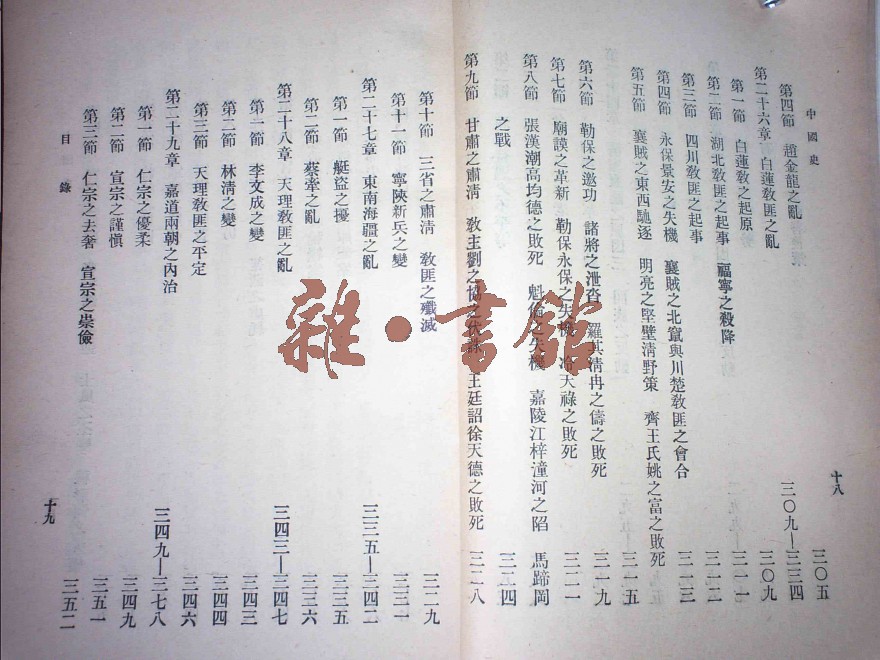 中國史
十八
第四節 趙金龍之亂 三〇五
第二十六章 白蓮教匪之亂 三〇九—三三四
第一節 白蓮教之起原 三〇九
第二節 湖北教匪之起事 福寧之殺降 三一一
第三節 四川教匪之起事 三一二
第四節 永保景安之失機 襄賊之北竄與川楚教匪之會合 三一三
第五節 襄賊之東西馳逐 明亮之堅壁清野策 齊王氏姚之富之敗死 三一五
第六節 勒保之邀功 諸將之泄沓 羅其清冉之儔之敗死 三一九
第七節 廟謨之革新 勒保永保之失機 冷天祿之敗死 三二一
第八節 張漢潮高均德之敗死 魁倫之失機 嘉陵江梓潼河之陷 馬蹄岡
之戰 三二四
第九節 甘肅之肅清 教主劉之協之伏誅 王廷詔徐天德之敗死 三二八
第十節 三省之肅清 教匪之殲滅 三二九
第十一節 寧陝新兵之變 三三一
第二十七章 東南海疆之亂 三三五—三四二
第一節 艇盜之擾 三三五
第二節 蔡牽之亂 三三六
第二十八章 天理教匪之亂 三四三—三四七
第一節 李文成之變 三四三
第二節 林清之變 三四四
第三節 天理教匪之平定 三四六
第二十九章 嘉道兩朝之內治 三四九—三七八
第一節 仁宗之優柔 三四九
第二節 宣宗之謹愼 三五一
第三節 仁宗之去奢 宣宗之崇儉 三五二
目錄
十九
雜·書館